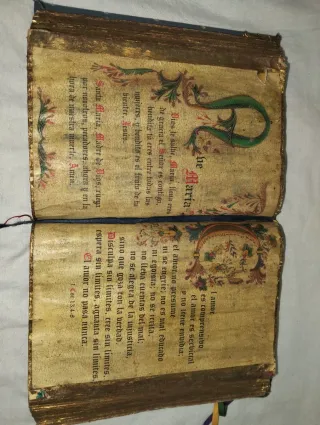 Ave Maria
Dios te salve, María, llena eres
de gracia el Señor es contigo,
bendita tú eres entre todas las
mujeres, y bendito es el fruto de tu
vientre, Jesús.
Santa María, Madre de Dios, ruega
por nosotros, pecadores, ahora y en la
hora de nuestra muerte. Amén.
El amor
es comprensivo,
el amor es servicial
y no tiene envidia;
el amor no presume
ni se engríe; no es mal educado
ni egoísta; no se irrita,
no lleva cuentas del mal,
no se alegra de la injusticia,
sino que goza con la verdad.
Disculpa sin límites, cree sin límites,
espera sin límites, aguanta sin límites.
El amor no pasa nunca.
1 Cor 13,4-8